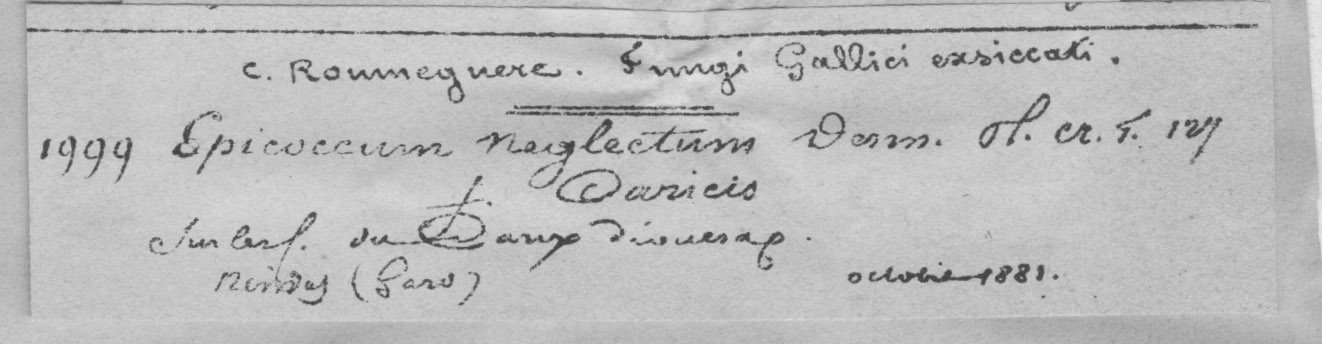 C. Roumeguere. Fungi Gallici exsiccati.
1999 Epicoccum neglectum Desm. Pl. cr. F. 127
f. Caricis
Sur les f. du Carex
(Gard) octobre 1881.